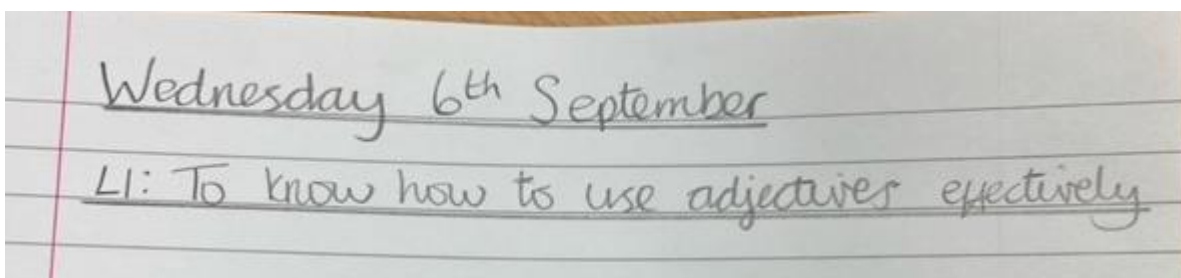 Wednesday 6th September
LI: To know how to use adjectives effectively